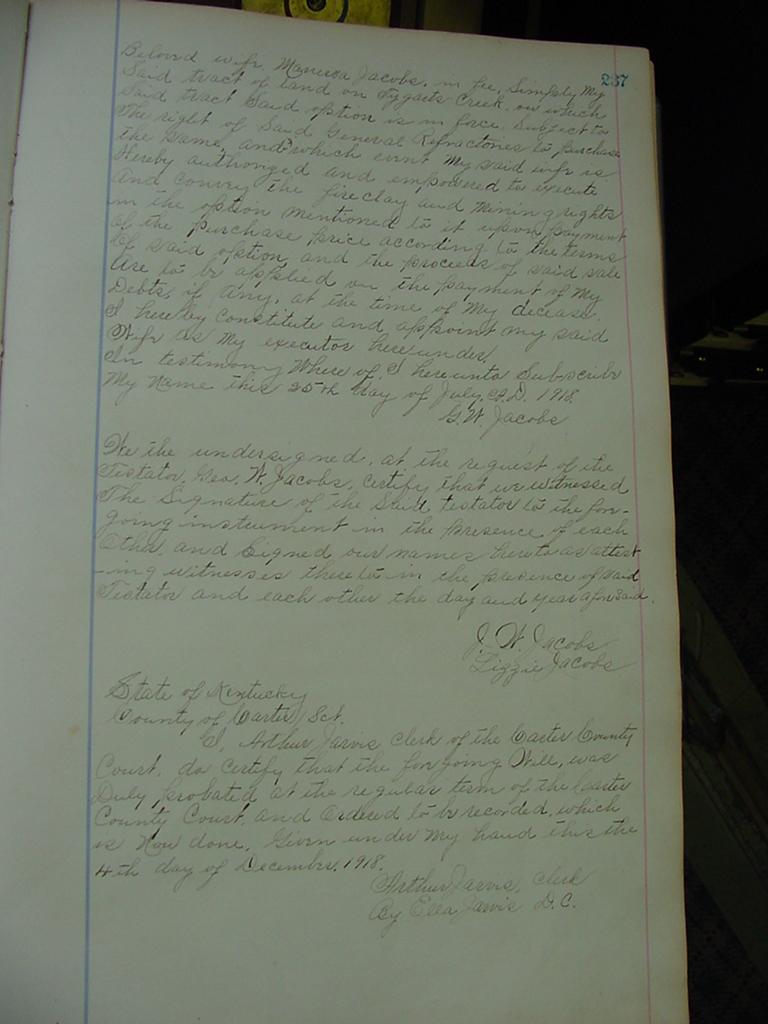 237
Beloved wife Manerva Jacobs, in fee, Simply My
Said tract of land on Tygarts Creek, on which
Said tract Said option is in force Subject to
The right of Said General Refractories to purchase
the same, and which event My said wife is
Hereby authorized and empowered to execute
And convey the fire clay and Mining rights
in the option mentioned to it upon payment
of the purchase price according to the terms
of said option, and the proceeds of said sale
Are to be applied on the payment of My
Debts, if any, at the time of My decease.
I hereby constitute and appoint my said
Wife as My executor here under
In testimony Where of, I here unto Subscribe
My Name this 25th day of July, A.D. 1918.
G. W. Jacobs
We the undersigned, at the request of the
Testator, Geo. W. Jacobs, Certify that we witnessed
The Signature of the Said testator to the for-
going instrument in the presence of each
Other and Signed our names hereto as attest
-ing witnesses thereto in the presence of said
Testator and each other the day and year afore said.
J. W. Jacobs
Lizzie Jacobs
State of Kentucky
County of Carter Sct.
I, Arthur Jarvis Clerk of the Carter County
Court, do Certify that the for going Will, was
Duly probated at the regular term of the Carter
County Court, and Ordered to be recorded, which
is Now done. Given under My hand this the
4th day of December, 1918.
Arthur Jarvis, Clerk
By Ella Jarvis D.C.